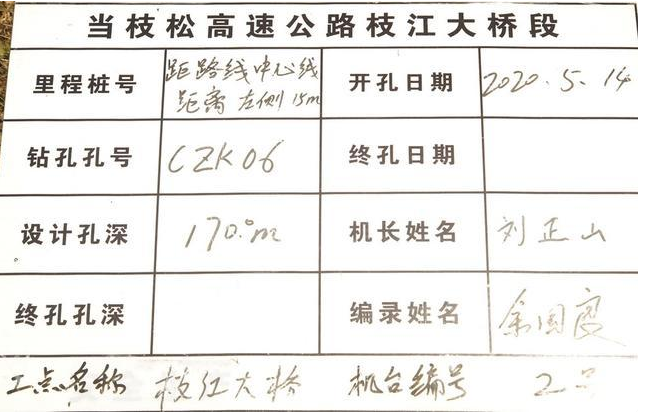 当枝松高速公路枝江大桥段
里程桩号 距路线中心线 开孔日期 2020.5.14
距离左侧15m
钻孔孔号 CZK06 终孔日期
设计孔深 170.0m 机长姓名 刘正山
终孔孔深 编录姓名 余国
工点名称 枝江大桥 机台编号 2号